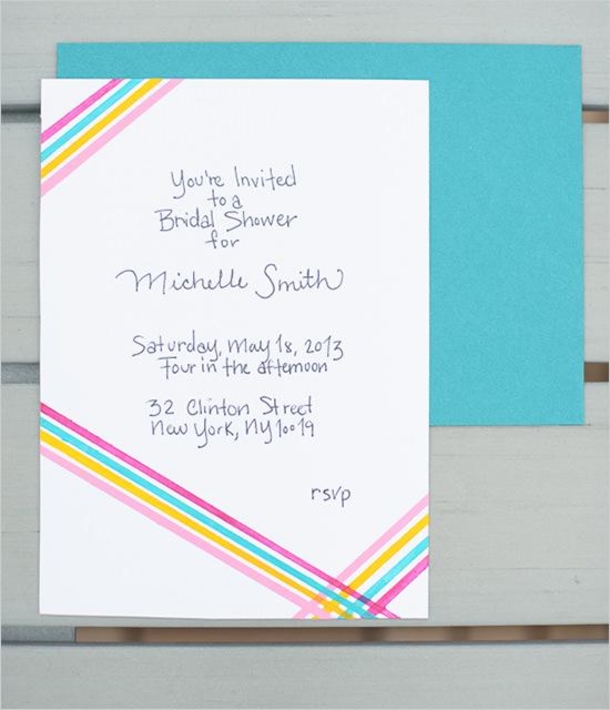 You're Invited
to a
Bridal Shower
for
Michelle Smith
Saturday, May 18, 2013
Four in the afternoon
32 Clinton Street
New York, NY 10019
rsvp